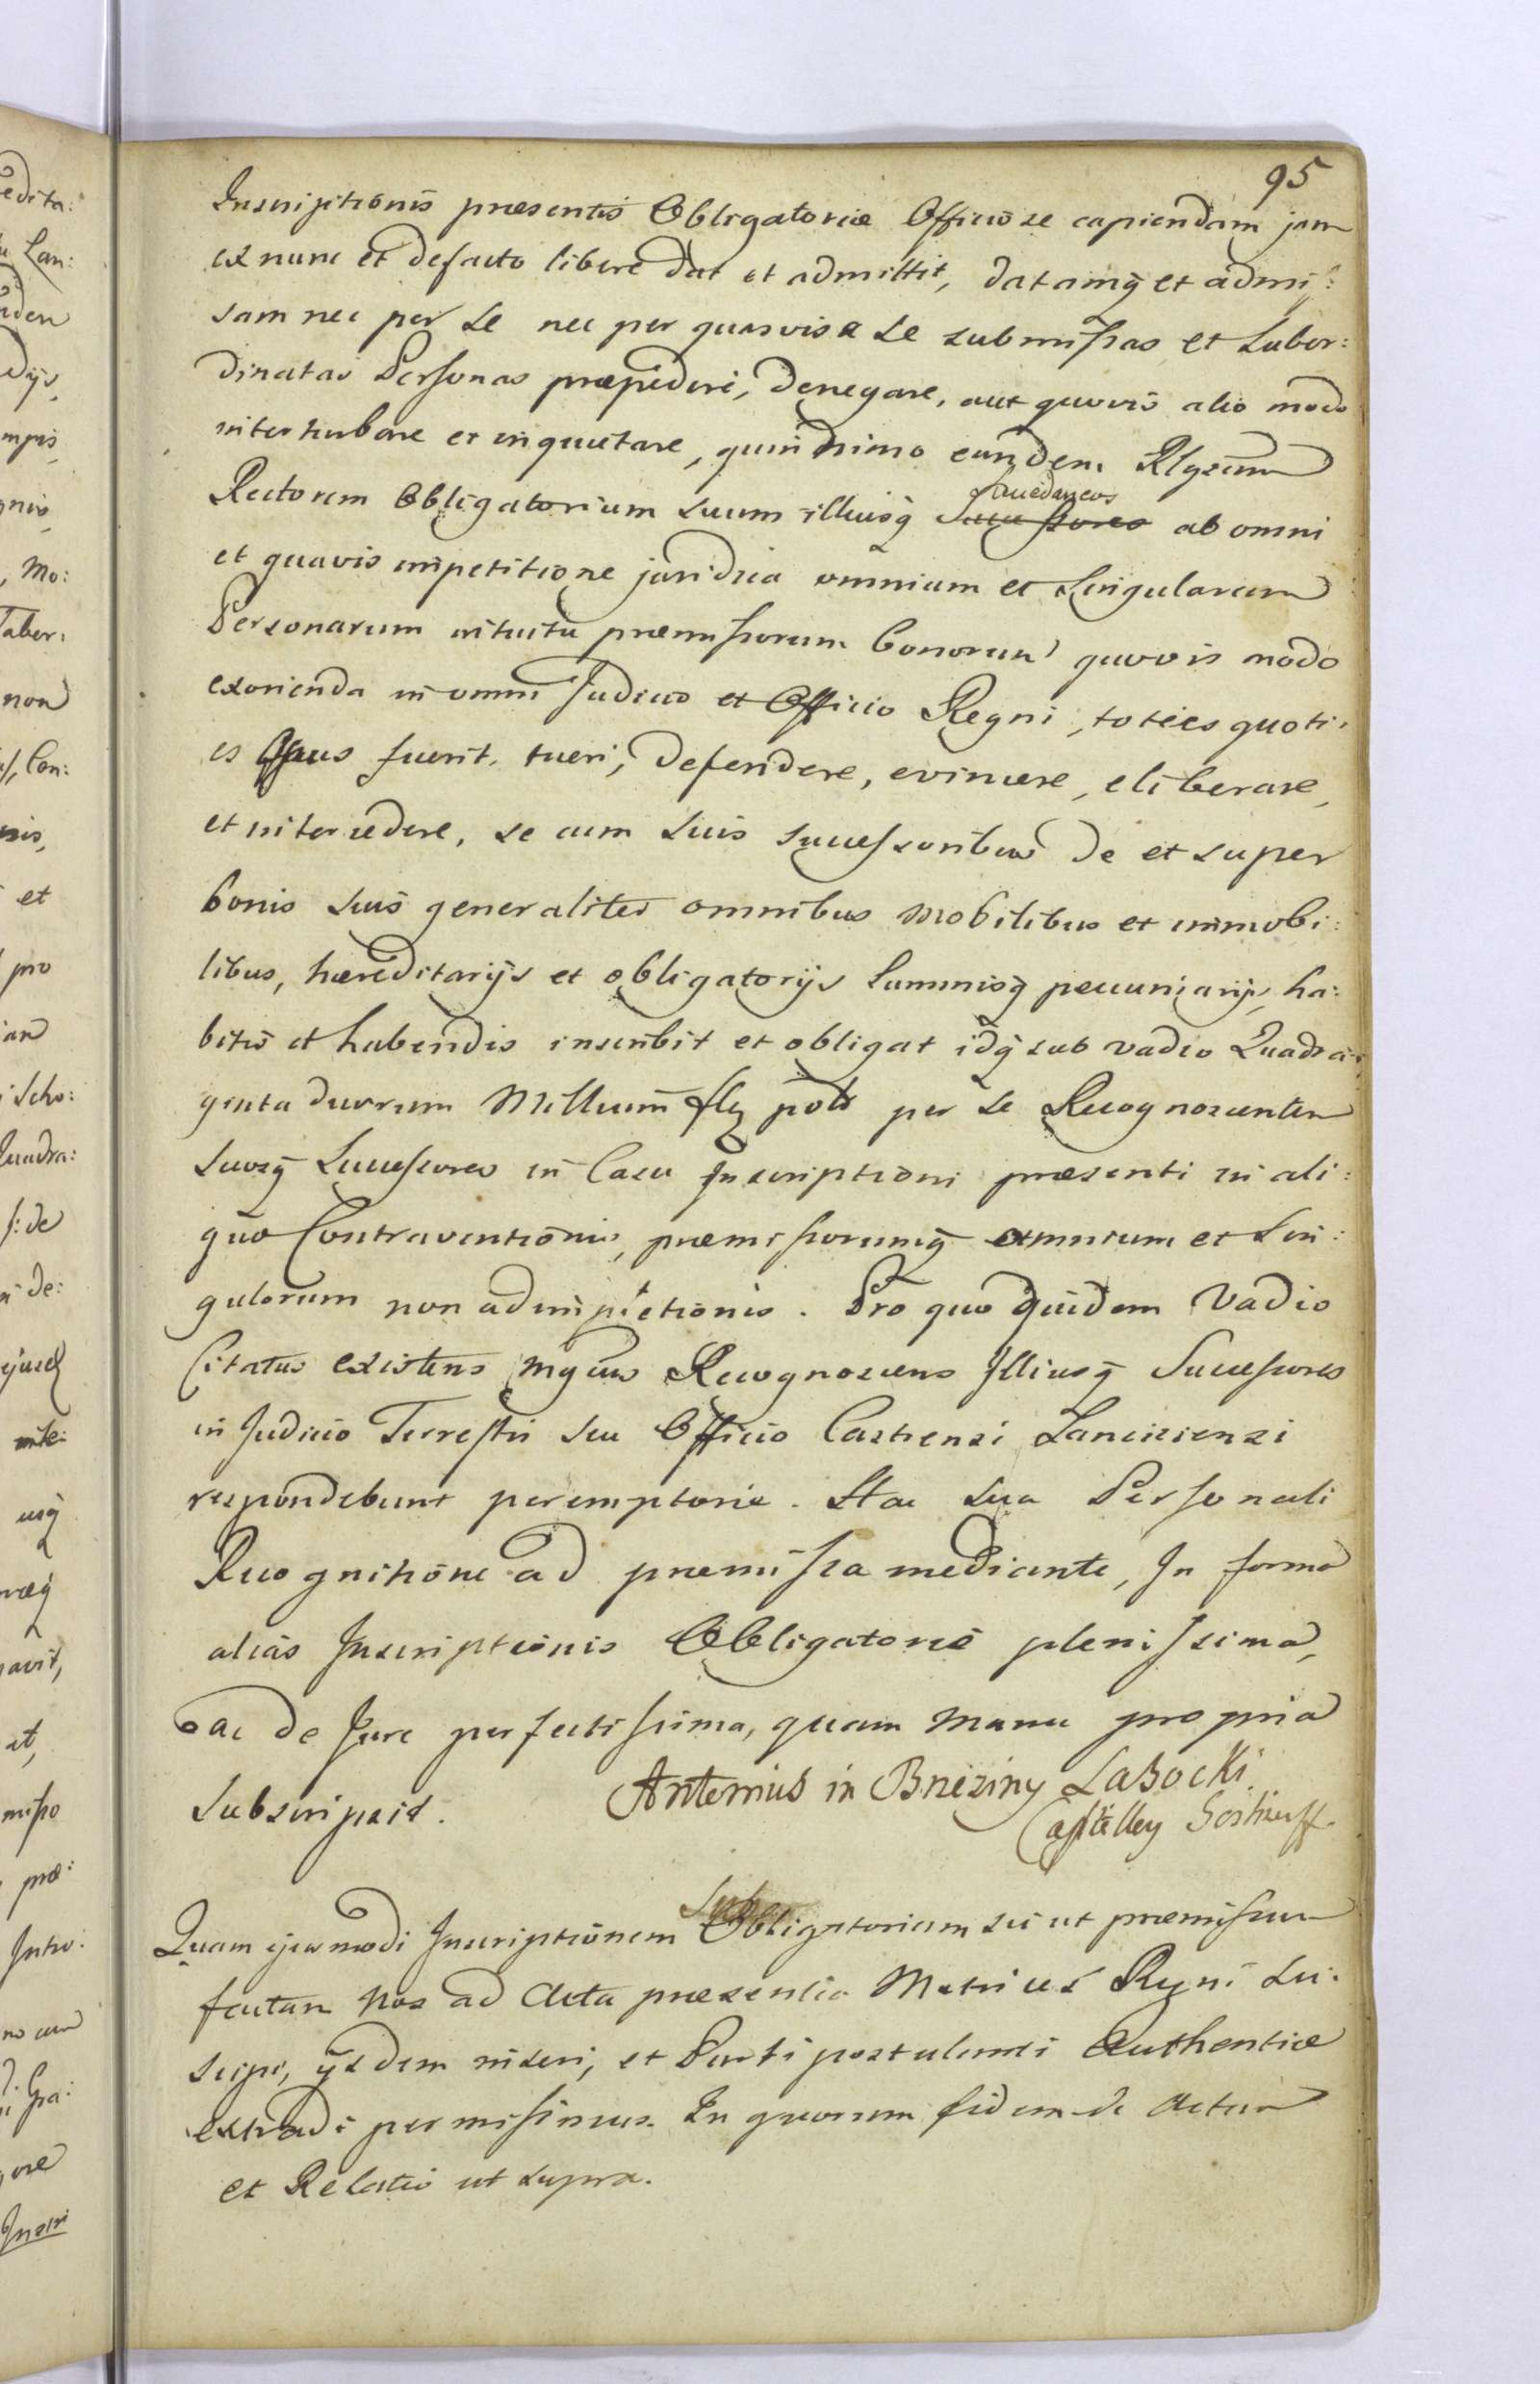 95
Inscriptionis præsentis Obligatoriæ Officiose capiendam jam
ex nunc et defacto libere dat et admittit, datamq̃ et admi:
sam nec per se nec per quasvis a se submissas et subor:
dinatas Personas præpedire, denegare, aut quovis alio modo
interturbare et inquietare, quin nimo eundem Rlgsum
Rectorem Obligatorium suum illiusq̃ Successores ccedaneos ab omni
et quavis impetitione juridica omnium et singularum
Personarum intuitu præmissorum bonorum quovis modo
exorienda in omni Judicio et Officio Regni, toties quoti:
es Opus fuerit, tueri, defendere, evincere, eliberare,
et intercedere, se cum suis successoribus de et super
bonis suis generaliter omnibus mobilibus et immobi:
libus, hæreditarijs et obligatorijs summisq̃ pecuniarijs, ha:
bitis et habendis inscribit et obligat idq̃ sub vadio Quadra:
ginta duorum Millium flq pol per se Recognoscentem
suosq̃ Successores in Casu Inscriptioni præsenti in ali:
quo Contraventionis, præmissorumq̃ omnium et sin:
gulorum non adimpletionis. Pro quo quidem Vadio
Citatus existens Mgcus Recognoscens Illiusq̃ Successores
in Judicio Terrestri seu Officio Castrensi Lanciciensi
respondebunt peremptorie. Hac sua Personali
Recognitione ad præmissa mediante, In forma
alias Inscriptionis Obligatoriæ plenissima,
ac de Jure perfectissima, quam Manu propria
subscripsit.
Antonius in Brzeziny Lasocki
Castelley
Quam ejusmodi Inscriptionem Sub Obligatoriam sic ut præmissum
factam Nos ad Acta præsentia Metrices Regni Su:
scipi, ijsdem inseri, et Parti postulanti Authentice
extradi permisimus. In quorum fidem de Actum
et Relatio ut supra.